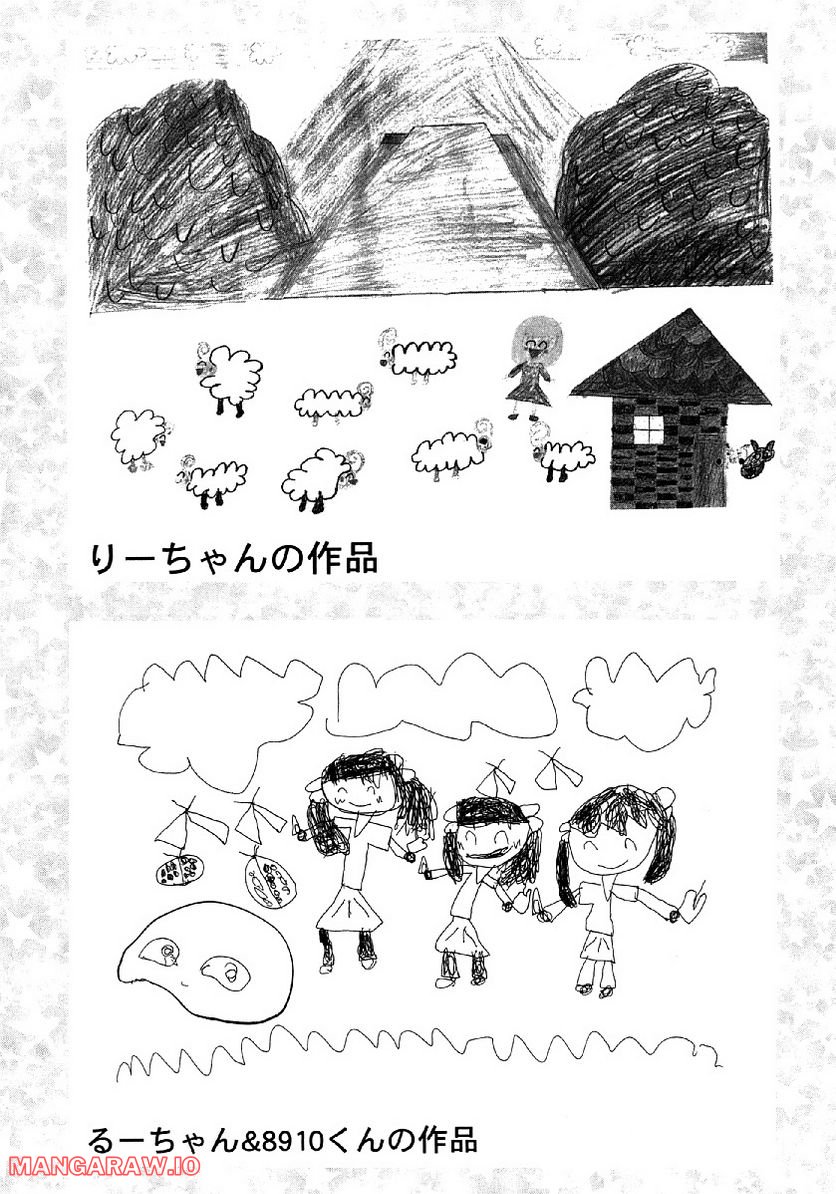 りーちゃんの作品
るーちゃん&8910くんの作品
MANGARAW.IO